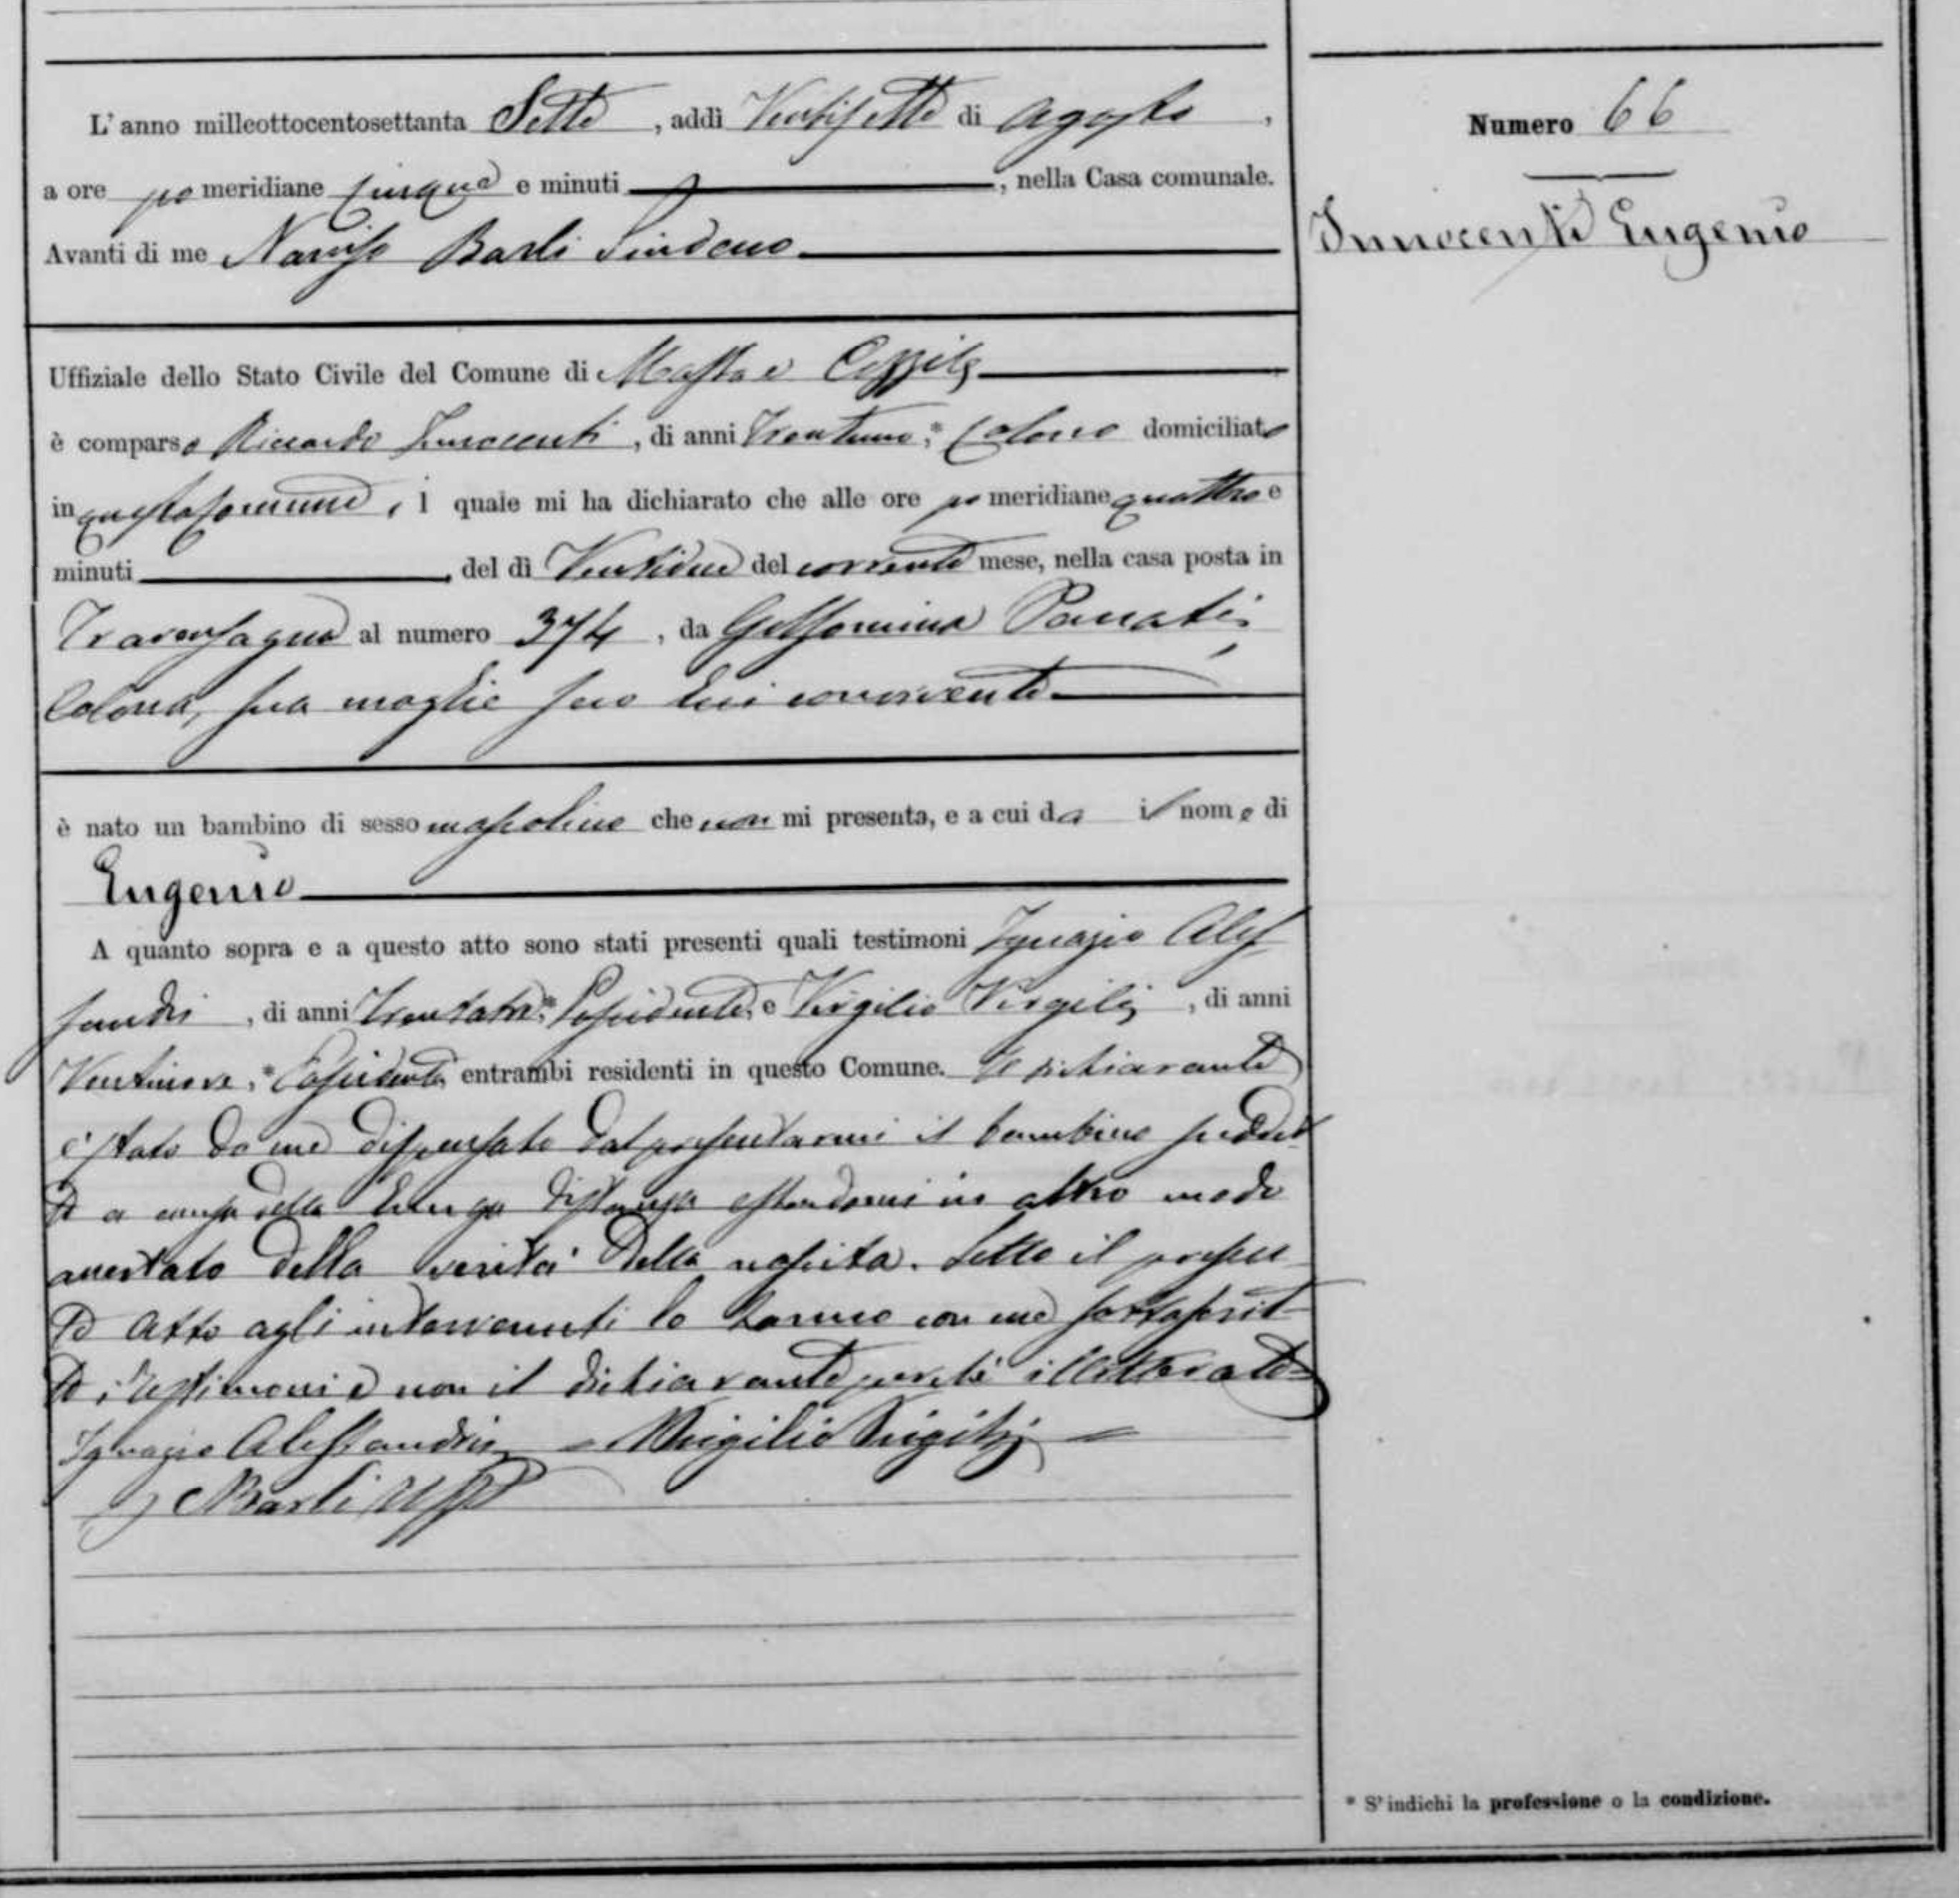 L'anno milleottocentosettanta Sette, addì Ventisette di Agosto,
a ore pomeridiane cinque e minuti, nella Casa comunale.
Avanti di me Narciso Barli Sindaco
Uffiziale dello Stato Civile del Comune di Massa e Cozzile
è comparso Riccardo Innocenti, di anni trentuno,* Colono domiciliato
in questo Comune, il quale mi ha dichiarato che alle ore pomeridiane quattro e
minuti, del dì Ventidue del corrente mese, nella casa posta in
Traversagna al numero 374, da Gelsomina Panati,
Colona, sua moglie seco lui convivente
è nato un bambino di sesso mascolino che non mi presenta, e a cui da il nome di
Eugenio
A quanto sopra e a questo atto sono stati presenti quali testimoni Ignazio Ales
sandri, di anni trentatre,* Possidente, e Virgilio Virgilj, di anni
Ventinove,* Possidente entrambi residenti in questo Comune. Il dichiarante
è stato da me dispensato dal presentarmi il bambino suddet
to a causa della lunga distanza essendomi in altro modo
accertato della verità della nascita. Letto il presen
te Atto agli intervenuti lo hanno con me sottoscrit
to i testimoni e non il dichiarante perché illetterato=
Ignazio Alessandri = Virgilio Virgilj =
N Barli Uff
Numero 66
Innocenti Eugenio
* S'indichi la professione o la condizione.